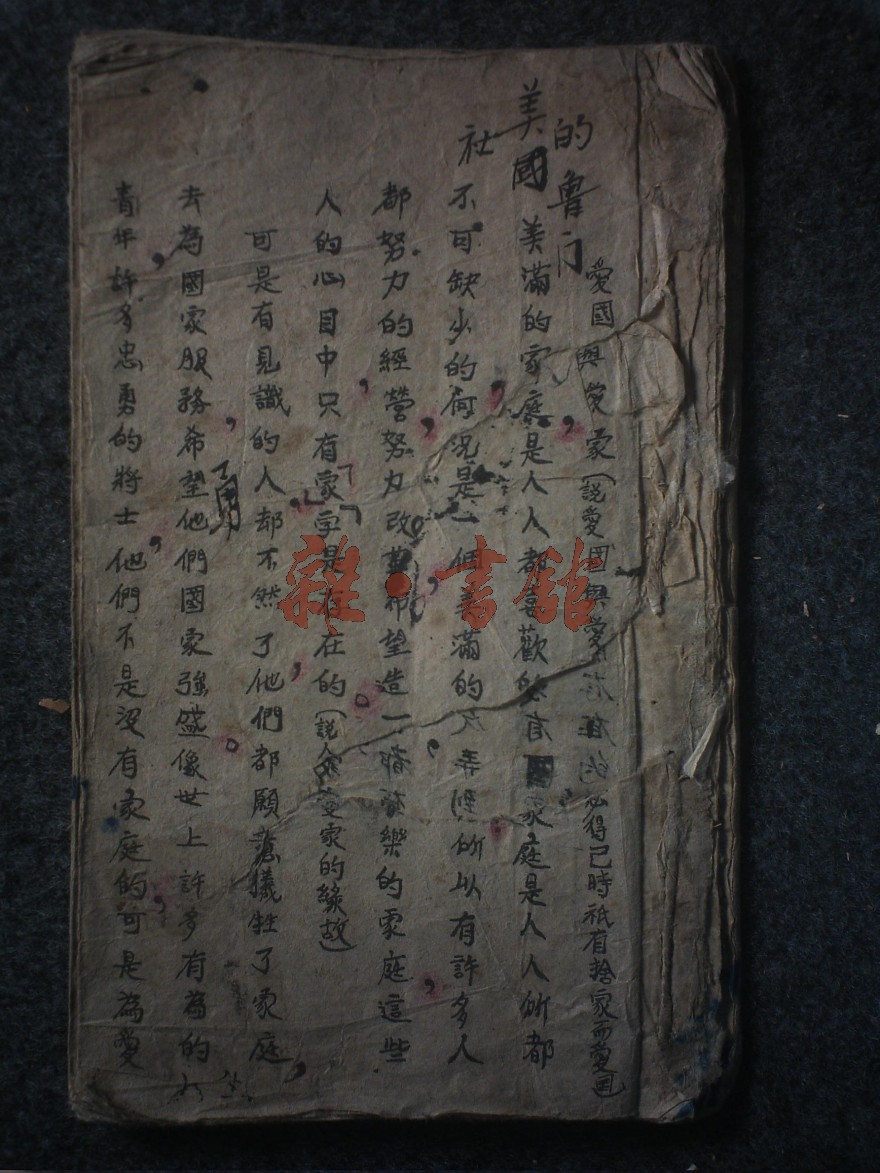 的魯
美國
社
愛國與愛家(說愛國與愛必得已時祇有捨家而愛國
美滿的家庭是人人都喜歡的有家庭是人人所都
不可缺少的何況是一個美滿的所以有許多人
都努力的經營努力改革希望造一樂的家庭這些
人的心目中只有「家」字是存在的(說人愛家的緣故)
可是有見識的人却不然了他們都願意犧牲了家庭
去為國家服務希望他們國家強盛像世上許多有為的
青年許多忠勇的將士他們不是沒有家庭的可是為愛
雜·書館